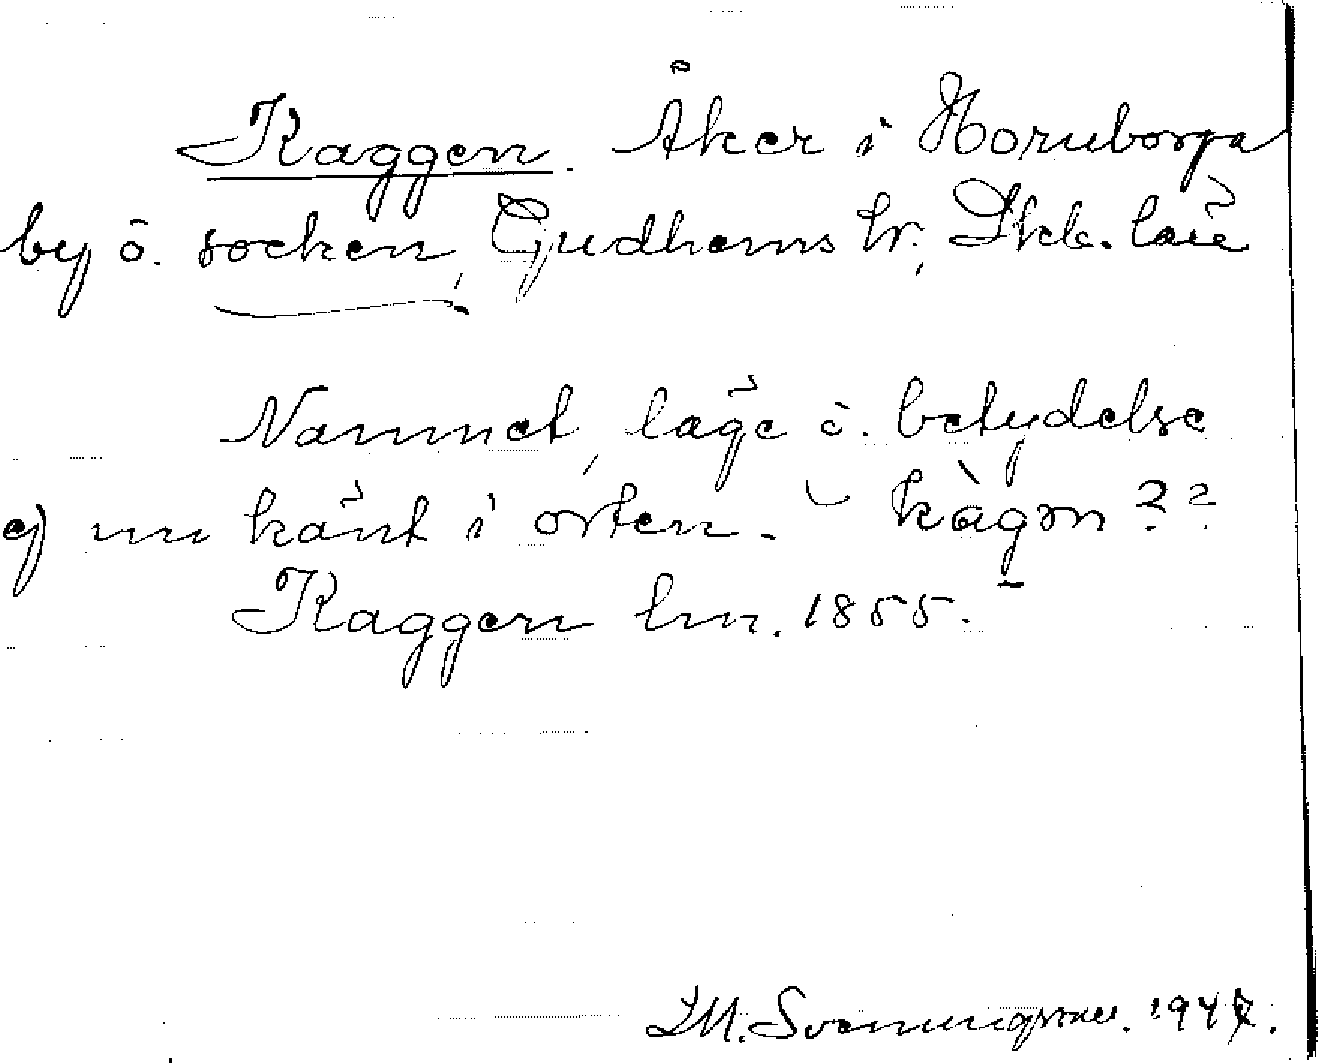 Kaggen. Åker i Hornborga
by o. socken, Gudhems hr, Skbg. län
Namnet, läge o. betydelse
ej nu känt i orten. – kagɔn ??
Kaggen lm. 1855.
Svenungsson. 194